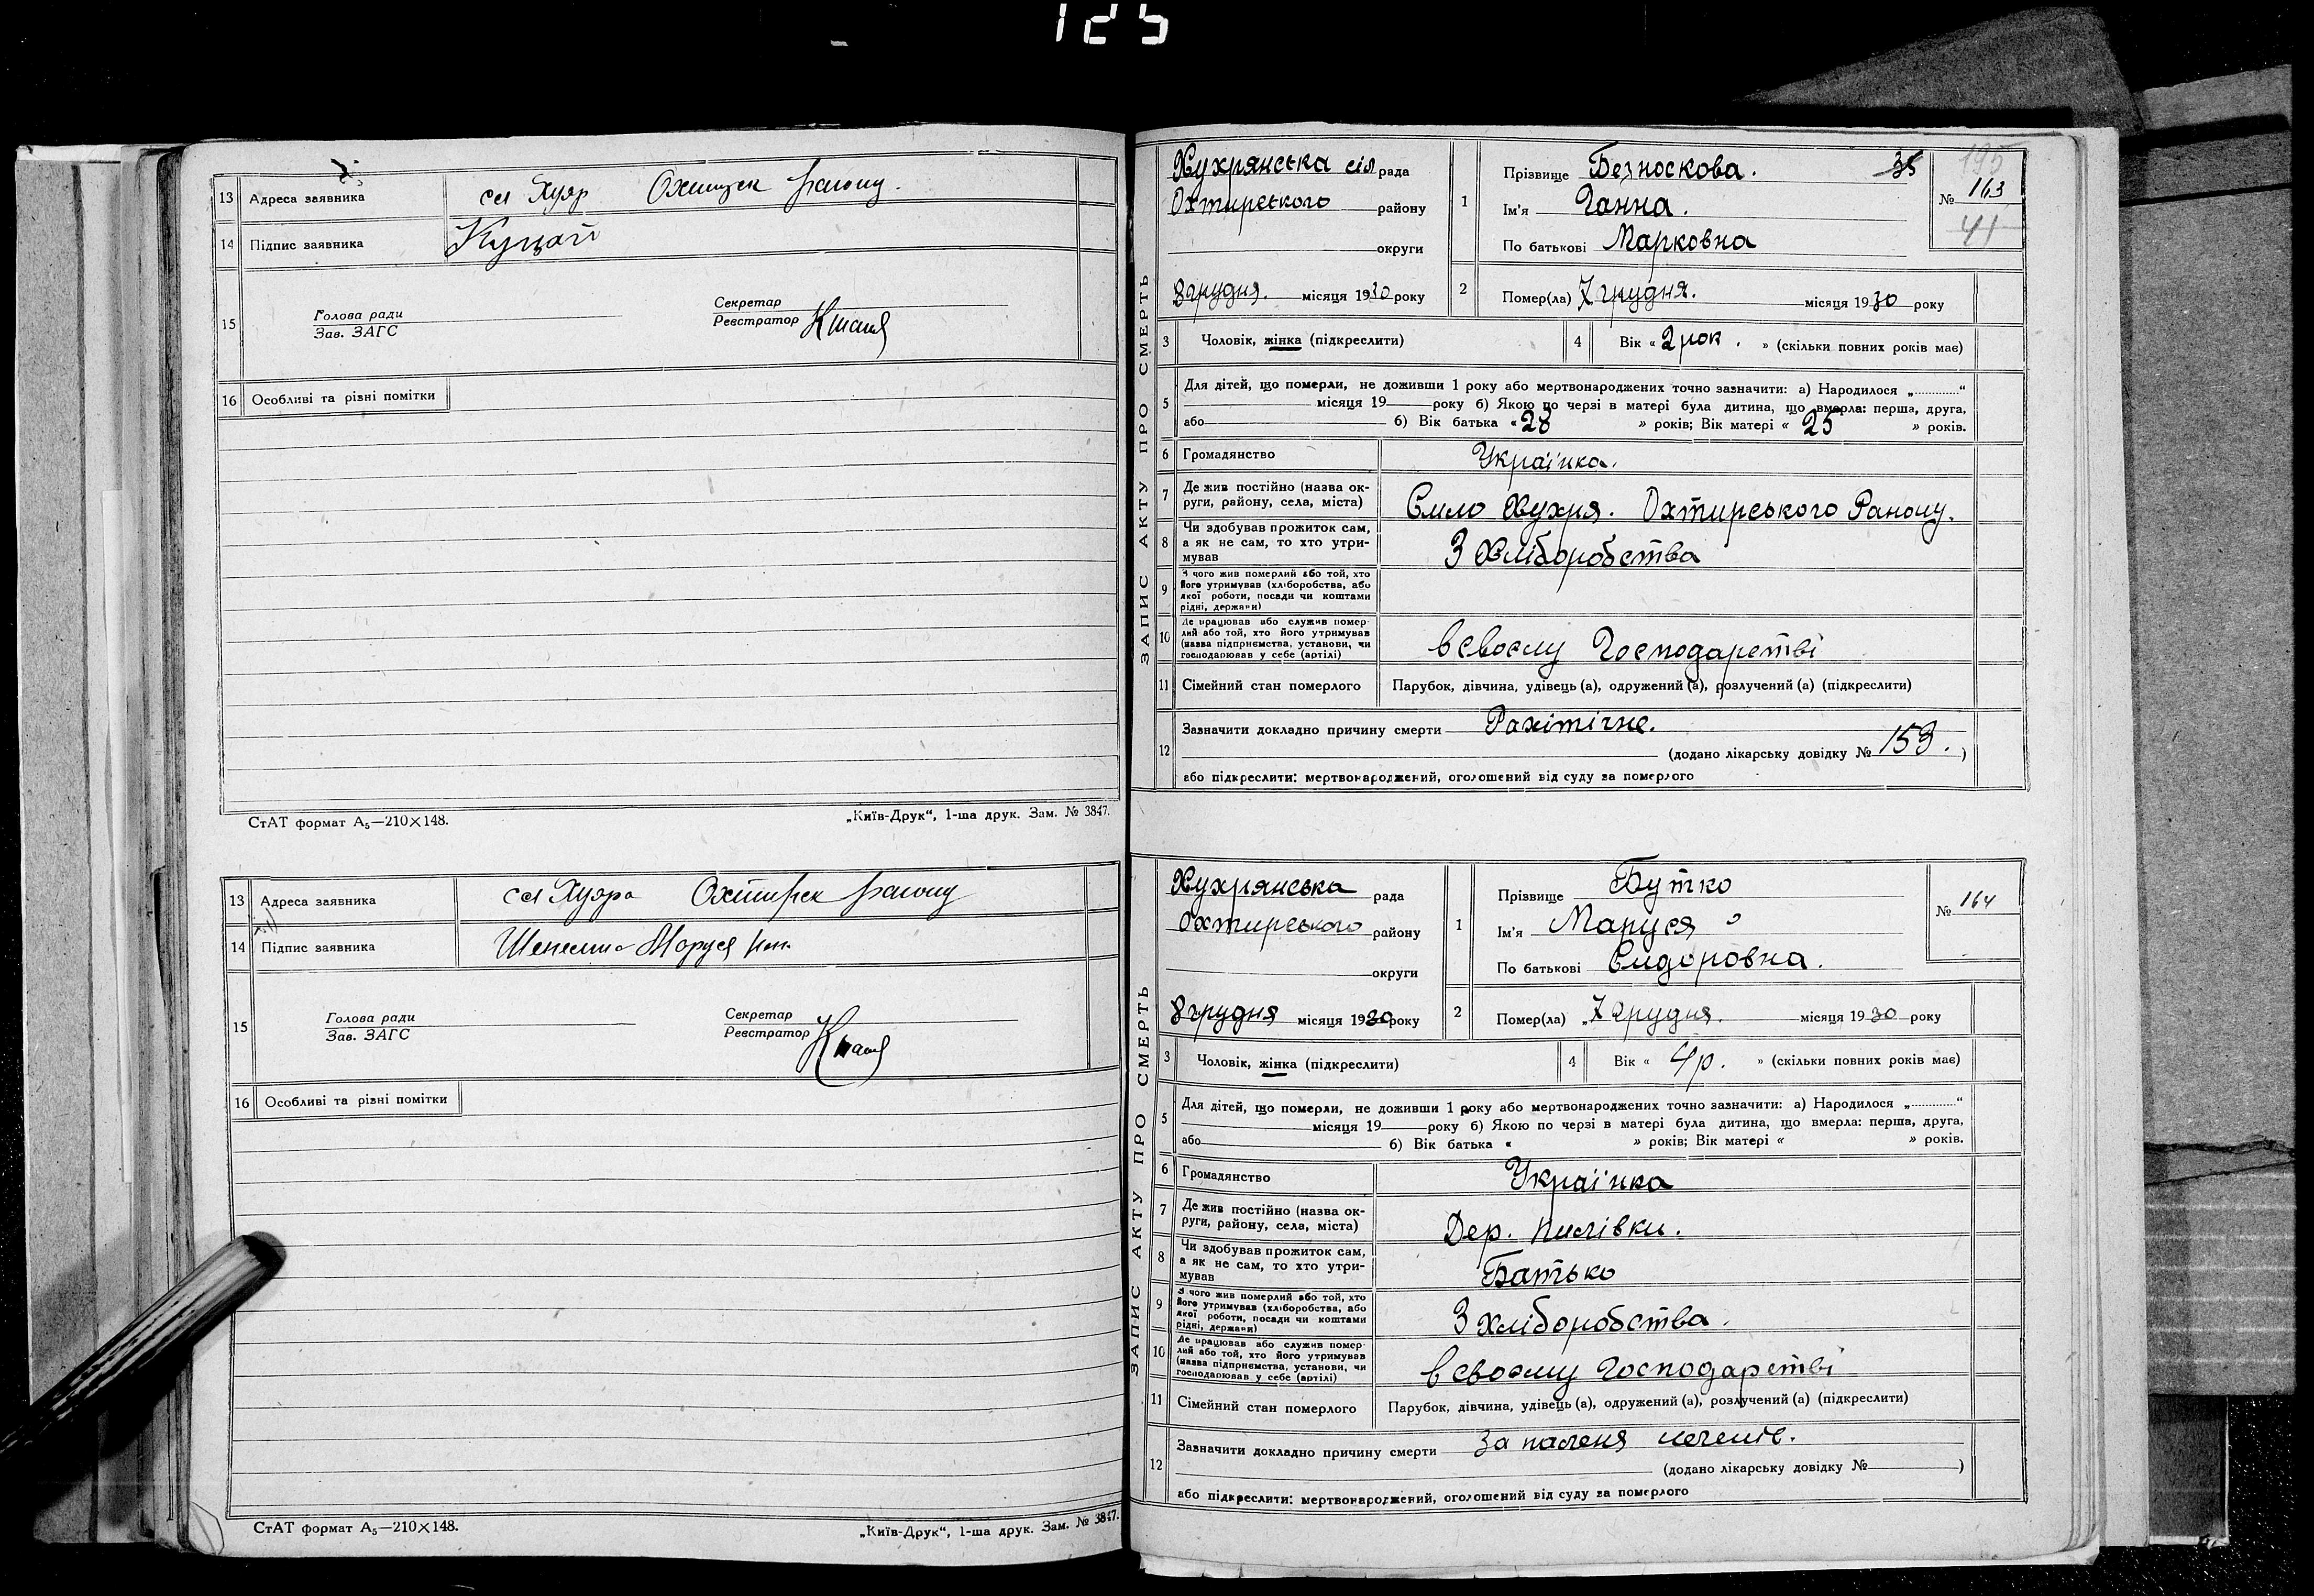 125
13 Адреса заявника сел Хухр Охтирск району.
14 Підпис заявника Куцай
15 Голова ради
Зав. ЗАГС
Секретар
Реєстратор
16 Особливі та різні помітки
СтАТ формат А₅—210×148. „Київ-Друк“, 1-ша друк. Зам. № 3847.
13 Адреса заявника сел Охтирск району
14 Підпис заявника Маруся
15 Голова ради
Зав. ЗАГС
Секретар
Реєстратор
16 Особливі та різні помітки
СтАТ формат А₅—210×148. „Київ-Друк“, 1-ша друк. Зам. № 3847.
ЗАПИС АКТУ ПРО СМЕРТЬ
Хухрянська сіл рада
Охтирського району
округи
8 грудня. місяця 1930 року
1 Прізвище Безноскова. 35
Ім'я Ганна.
По батькові Марковна
195
№ 163
41
2 Помер(ла) 7 грудня. місяця 1930 року
3 Чоловік, жінка (підкреслити)
4 Вік « 2 рок. » (скільки повних років має)
5 Для дітей, що померли, не доживши 1 року або мертвонароджених точно зазначити: а) Народилося „ “
місяця 19 року б) Якою по черзі в матері була дитина, що вмерла: перша, друга,
або б) Вік батька « 28 » років; Вік матері « 25 » років.
6 Громадянство Українка.
7 Де жив постійно (назва ок-
руги, району, села, міста) Село Хухря. Охтирського Району.
8 Чи здобував прожиток сам,
а як не сам, то хто утри-
мував З Хліборобства
9 З чого жив померлий або той, хто
його утримував (хліборобства, або
якої роботи, посади чи коштами
рідні, держави)
10 Де працював або служив помер-
лий або той, хто його утримував
(назва підприємства, установи, чи
господарював у себе (артілі) в своєму Господарстві
11 Сімейний стан померлого Парубок, дівчина, удівець (а), одружений (а), розлучений (а) (підкреслити)
12 Зазначити докладно причину смерти Рахітічне.
(додано лікарську довідку № 153. )
або підкреслити: мертвонароджений, оголошений від суду за померлого
ЗАПИС АКТУ ПРО СМЕРТЬ
Хухрянська рада
Охтирського району
округи
8 грудня місяця 1930 року
1 Прізвище Бутко
Ім'я Маруся
По батькові Сидоровна.
№ 164
2 Помер(ла) „7 грудня. місяця 1930 року
3 Чоловік, жінка (підкреслити)
4 Вік « 4 р. » (скільки повних років має)
5 Для дітей, що померли, не доживши 1 року або мертвонароджених точно зазначити: а) Народилося „ “
місяця 19 року б) Якою по черзі в матері була дитина, що вмерла: перша, друга,
або б) Вік батька « » років; Вік матері « » років.
6 Громадянство Українка
7 Де жив постійно (назва ок-
руги, району, села, міста) Дер.
8 Чи здобував прожиток сам,
а як не сам, то хто утри-
мував Батько
9 З чого жив померлий або той, хто
його утримував (хліборобства, або
якої роботи, посади чи коштами
рідні, держави) З хліборобства.
10 Де працював або служив помер-
лий або той, хто його утримував
(назва підприємства, установи, чи
господарював у себе (артілі) в своєму господарстві
11 Сімейний стан померлого Парубок, дівчина, удівець (а), одружений (а), розлучений (а) (підкреслити)
12 Зазначити докладно причину смерти За паленя легенів.
(додано лікарську довідку № )
або підкреслити: мертвонароджений, оголошений від суду за померлого